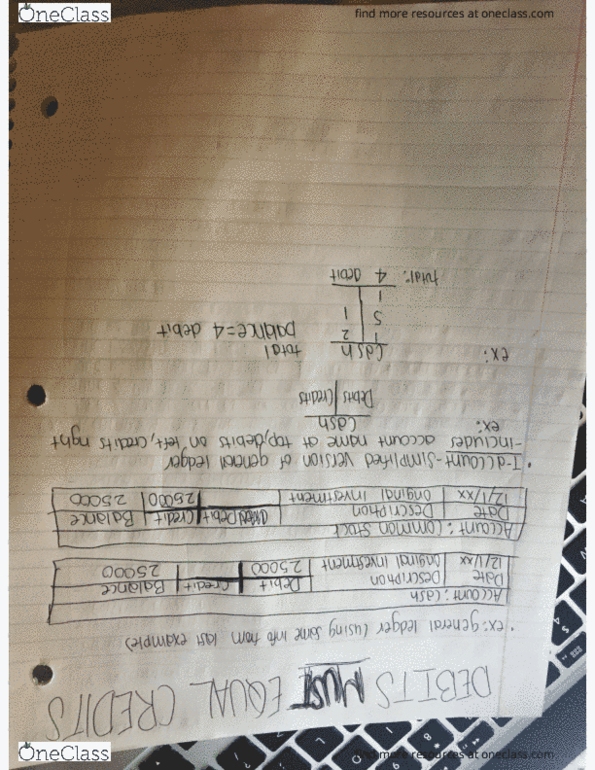 OneClass find more resources at oneclass.com
DEBITS MUST EQUAL CREDITS
• ex: general ledger (using some info from last example)
Account: Cash
Date Description Debit Credit Balance
12/1/xx Original Investment 25000 25000
Account: Common Stock
Date Description Debit Credit Balance
12/1/xx Original Investment 25000 25000
• T-account - simplified version of general ledger
- includes account name at top, debits on left, credits right
ex: Cash
Debits Credits
ex: Cash total
1 2 balance = 4 debit
5 1
1
total: 4 debit
OneClass find more resources at oneclass.com